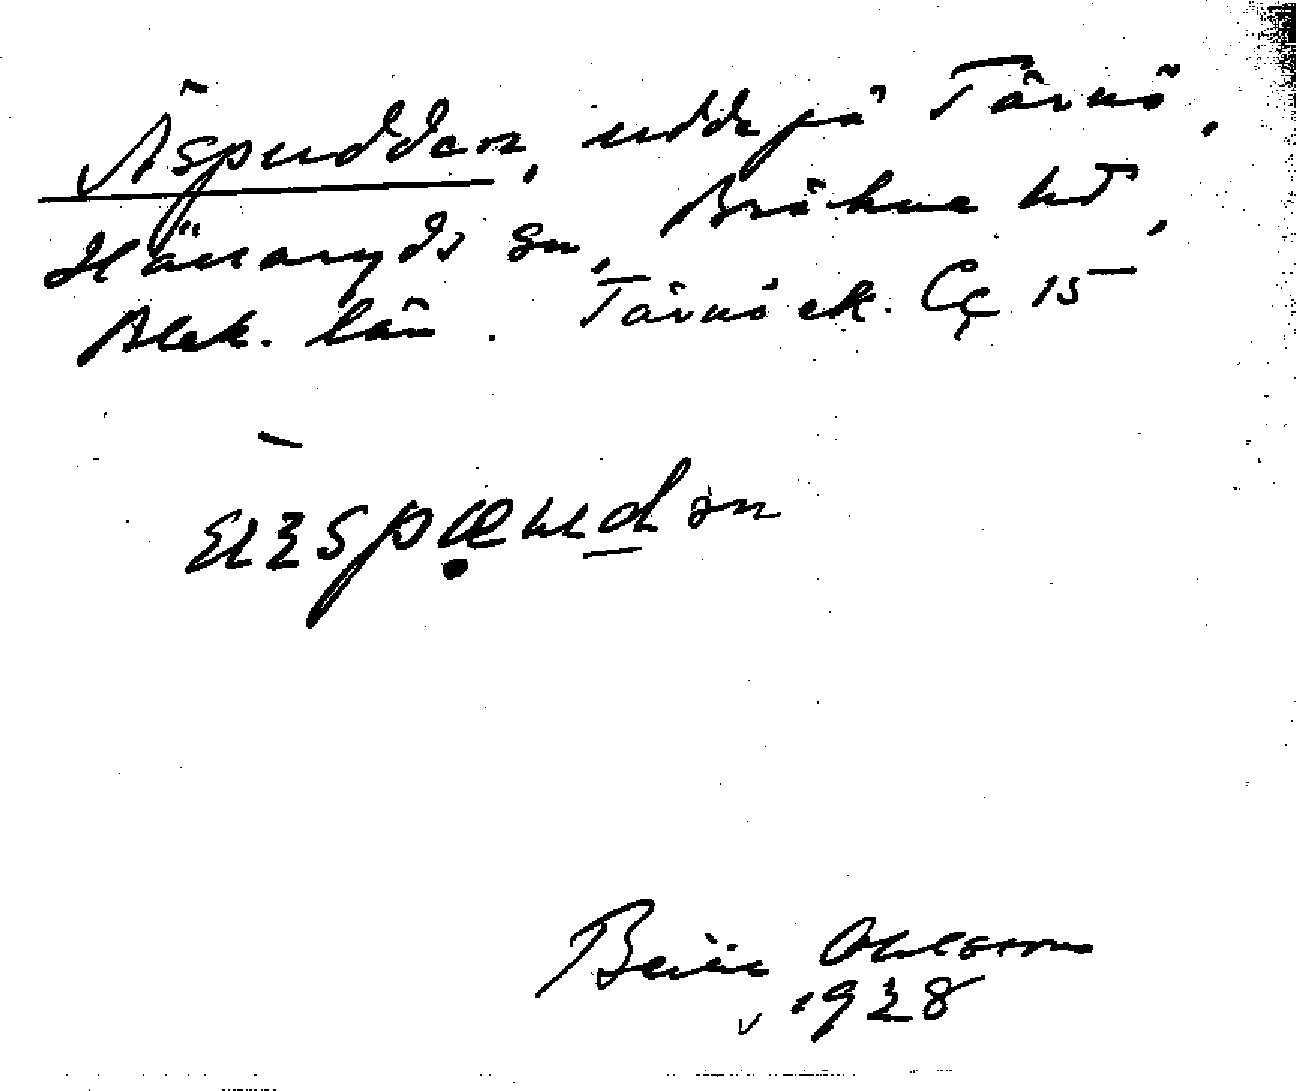 Äspudden, udde på Tärnö,
Hällaryds sn, Bräkne hd,
Blek. län. Tärnö ek. Cc 15
Bertil Ohlsson
1928